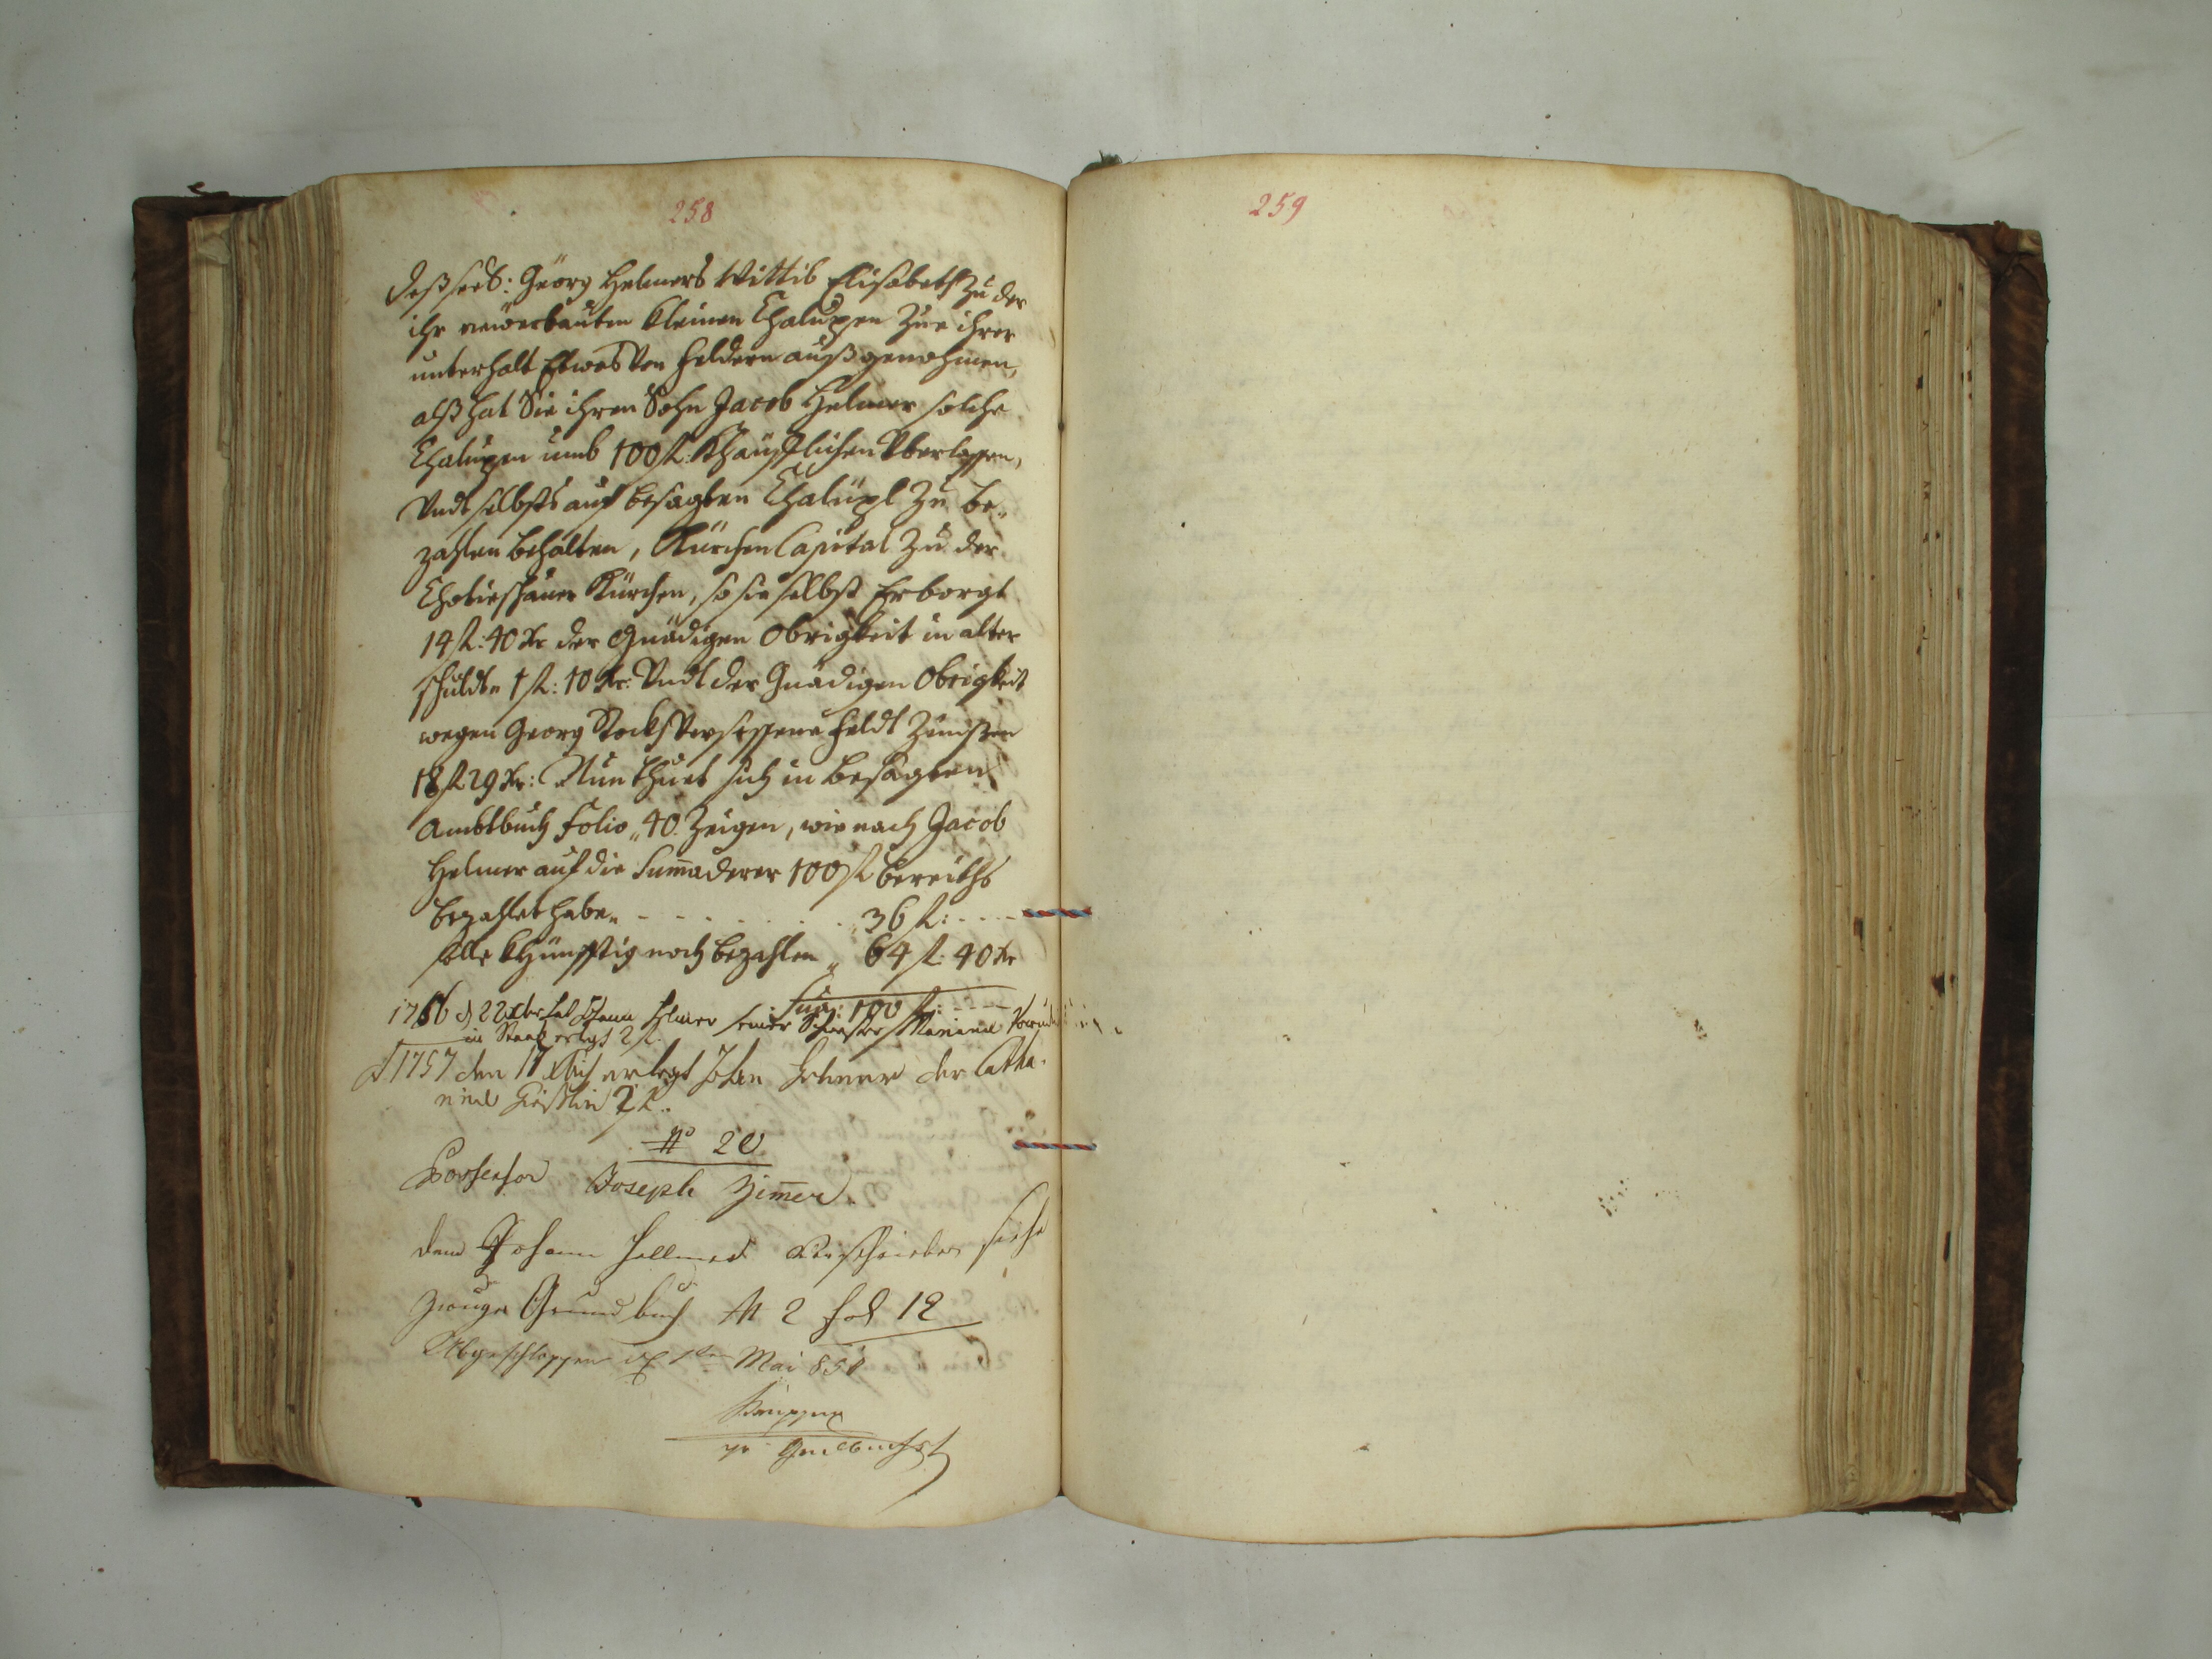 258
259
Georg Helmers Wittib Elisabeth zu der
ihr neuerbauten kleinen Chalupen zue ihrer
unterhalt Etwas Von feldern außgenohmen,
alß hat Sie ihren Sohn Jacob Helmer solche
Chalupen umb 100 fl. Khäufflichen Überlassen,
Undt selbsts auf besagten Chalüpl zu be„
zahlen behalten, Kürchen Capital zu der
Chotieschauer Kürchen, so sie selbst Erborgt
14 fl: 40 kr der Gnädigen Obrigkeit in alter
schuldt 1 fl: 10 kr: Undt der Gnädigen Obrigkeit
wegen Georg Stocks Versessene feldt Zünßen
18 fl 29 kr: Nun thuet sich in besagten
Ambtbuch Folio„ 40 Zeigen, wie nach Jacob
Helmer auf die Suma derer 100 fl bereiths
bezahlet habe„ 36 fl:
solle Khünfftig noch bezahlen „ 64 fl: 40 kr
Sua: 100 fl:
22 hat Johann Helmer seiner Schwester
erlegt 2 fl.
1757 den 17 erlegt Johan Helmer der Catha„
rina 2 fl.
No 20
Possessor Joseph Zimer.
dem Johann Hellmer Verschrieben siehe
Grundbuch N 2 fol 12
Abgeschlossen 1ten Mai 850